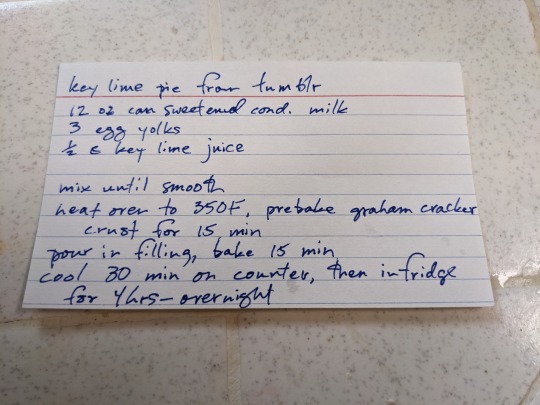 key lime pie from tumblr
12 oz can sweetened cond. milk
3 egg yolks
½ c key lime juice
mix until smooth
heat oven to 350F, prebake graham cracker
crust for 15 min
pour in filling, bake 15 min
cool 30 min on counter, then in fridge
for 4hrs - overnight